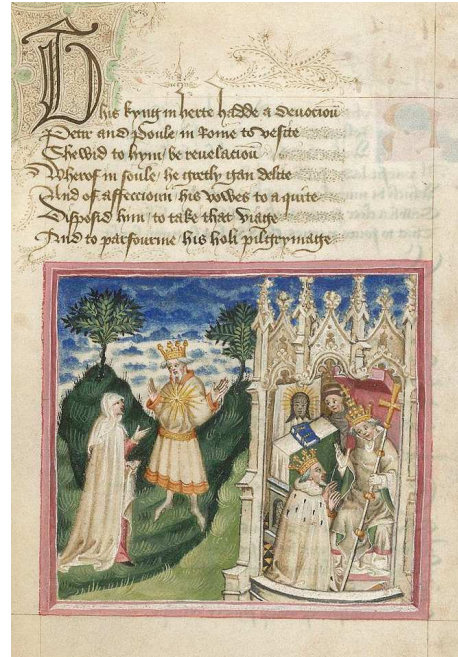 This kyng in herte hadde a devocioun
Petir and Poule in Rome to vesite
Shewid to hym be revelacioun
Wherof in soule he gretly gan delite
And of affeccioun his vowes to aquite
Disposid him to take that viage
And to parfourme his holi pilgrymage